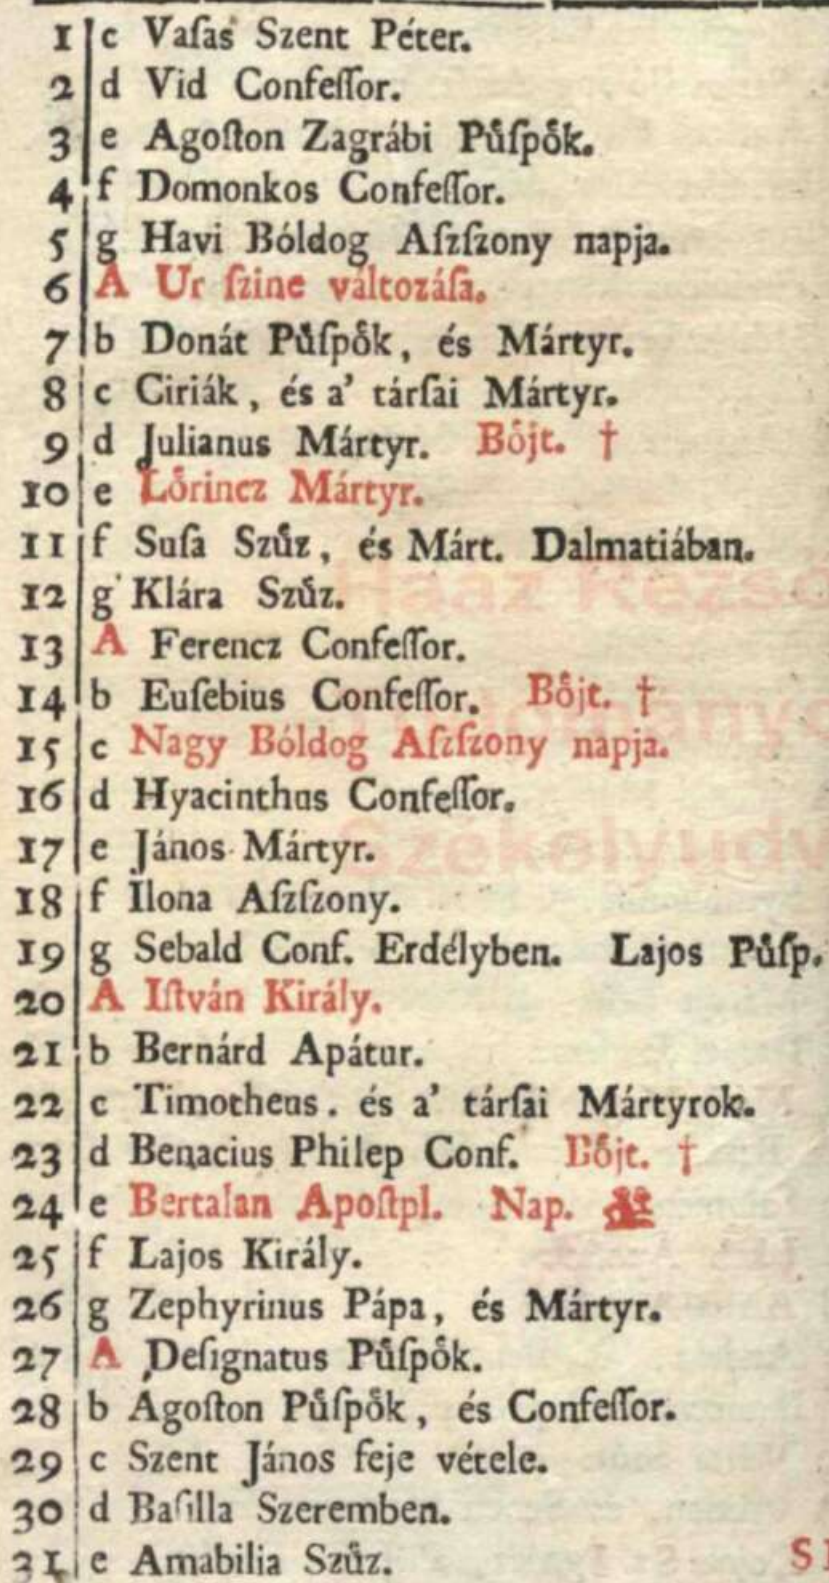 1 c Vaſas Szent Péter.
2 d Vid Confeſſor.
3 e Agoſton Zagrábi Pu̇ſpo̊k.
4 f Domonkos Confeſſor.
5 g Havi Bóldog Aſzſzony napja.
6 A Ur ſzine változáſa.
7 b Donát Pu̇ſpo̊k, és Mártyr.
8 c Ciriák, és a’ tárſai Mártyr.
9 d Julianus Mártyr. Bo̊jt. †
10 e Lo̊rincz Mártyr.
11 f Suſa Szu̇z, és Márt. Dalmatiában.
12 g Klára Szu̇z.
13 A Ferencz Confeſſor.
14 b Euſebius Confeſſor. Bo̊jt. †
15 c Nagy Bóldog Aſzſzony napja.
16 d Hyacinthus Confeſſor.
17 e János Mártyr.
18 f Ilona Aſzſzony.
19 g Sebald Conf. Erdélyben. Lajos Pu̇ſp.
20 A Iſtván Király.
21 b Bernárd Apátur.
22 c Timotheus. és a’ tárſai Mártyrok.
23 d Benacius Philep Conf. Bo̊jt. †
24 e Bertalan Apoſtpl. Nap.
25 f Lajos Király.
26 g Zephyrinus Pápa, és Mártyr.
27 A Deſignatus Pu̇ſpo̊k.
28 b Agoſton Pu̇ſpo̊k, és Confeſſor.
29 c Szent János feje vétele.
30 d Baſilla Szeremben.
31 e Amabilia Szu̇z.